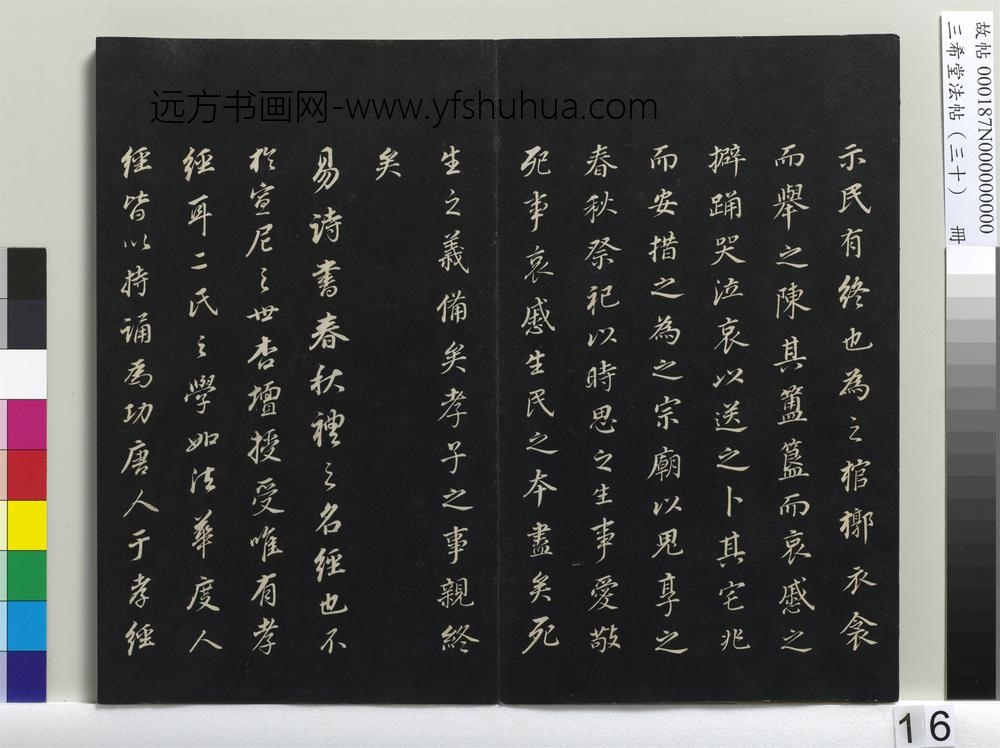 示民有終也為之棺槨衣衾
而舉之陳其簠簋而哀慼之
擗踊哭泣哀以送之卜其宅兆
而安措之為之宗廟以鬼享之
春秋祭祀以時思之生事愛敬
死事哀慼生民之本盡矣死
生之義備矣孝子之事親終
矣
易詩書春秋禮之名經也不
於宣尼之世杏壇授受唯有孝
經耳二氏之學如法華度人
經皆以持誦為功唐人于孝經
远方书画网-www.yfshuhua.com
故帖 000187N000000000
三希堂法帖（三十） 冊
16